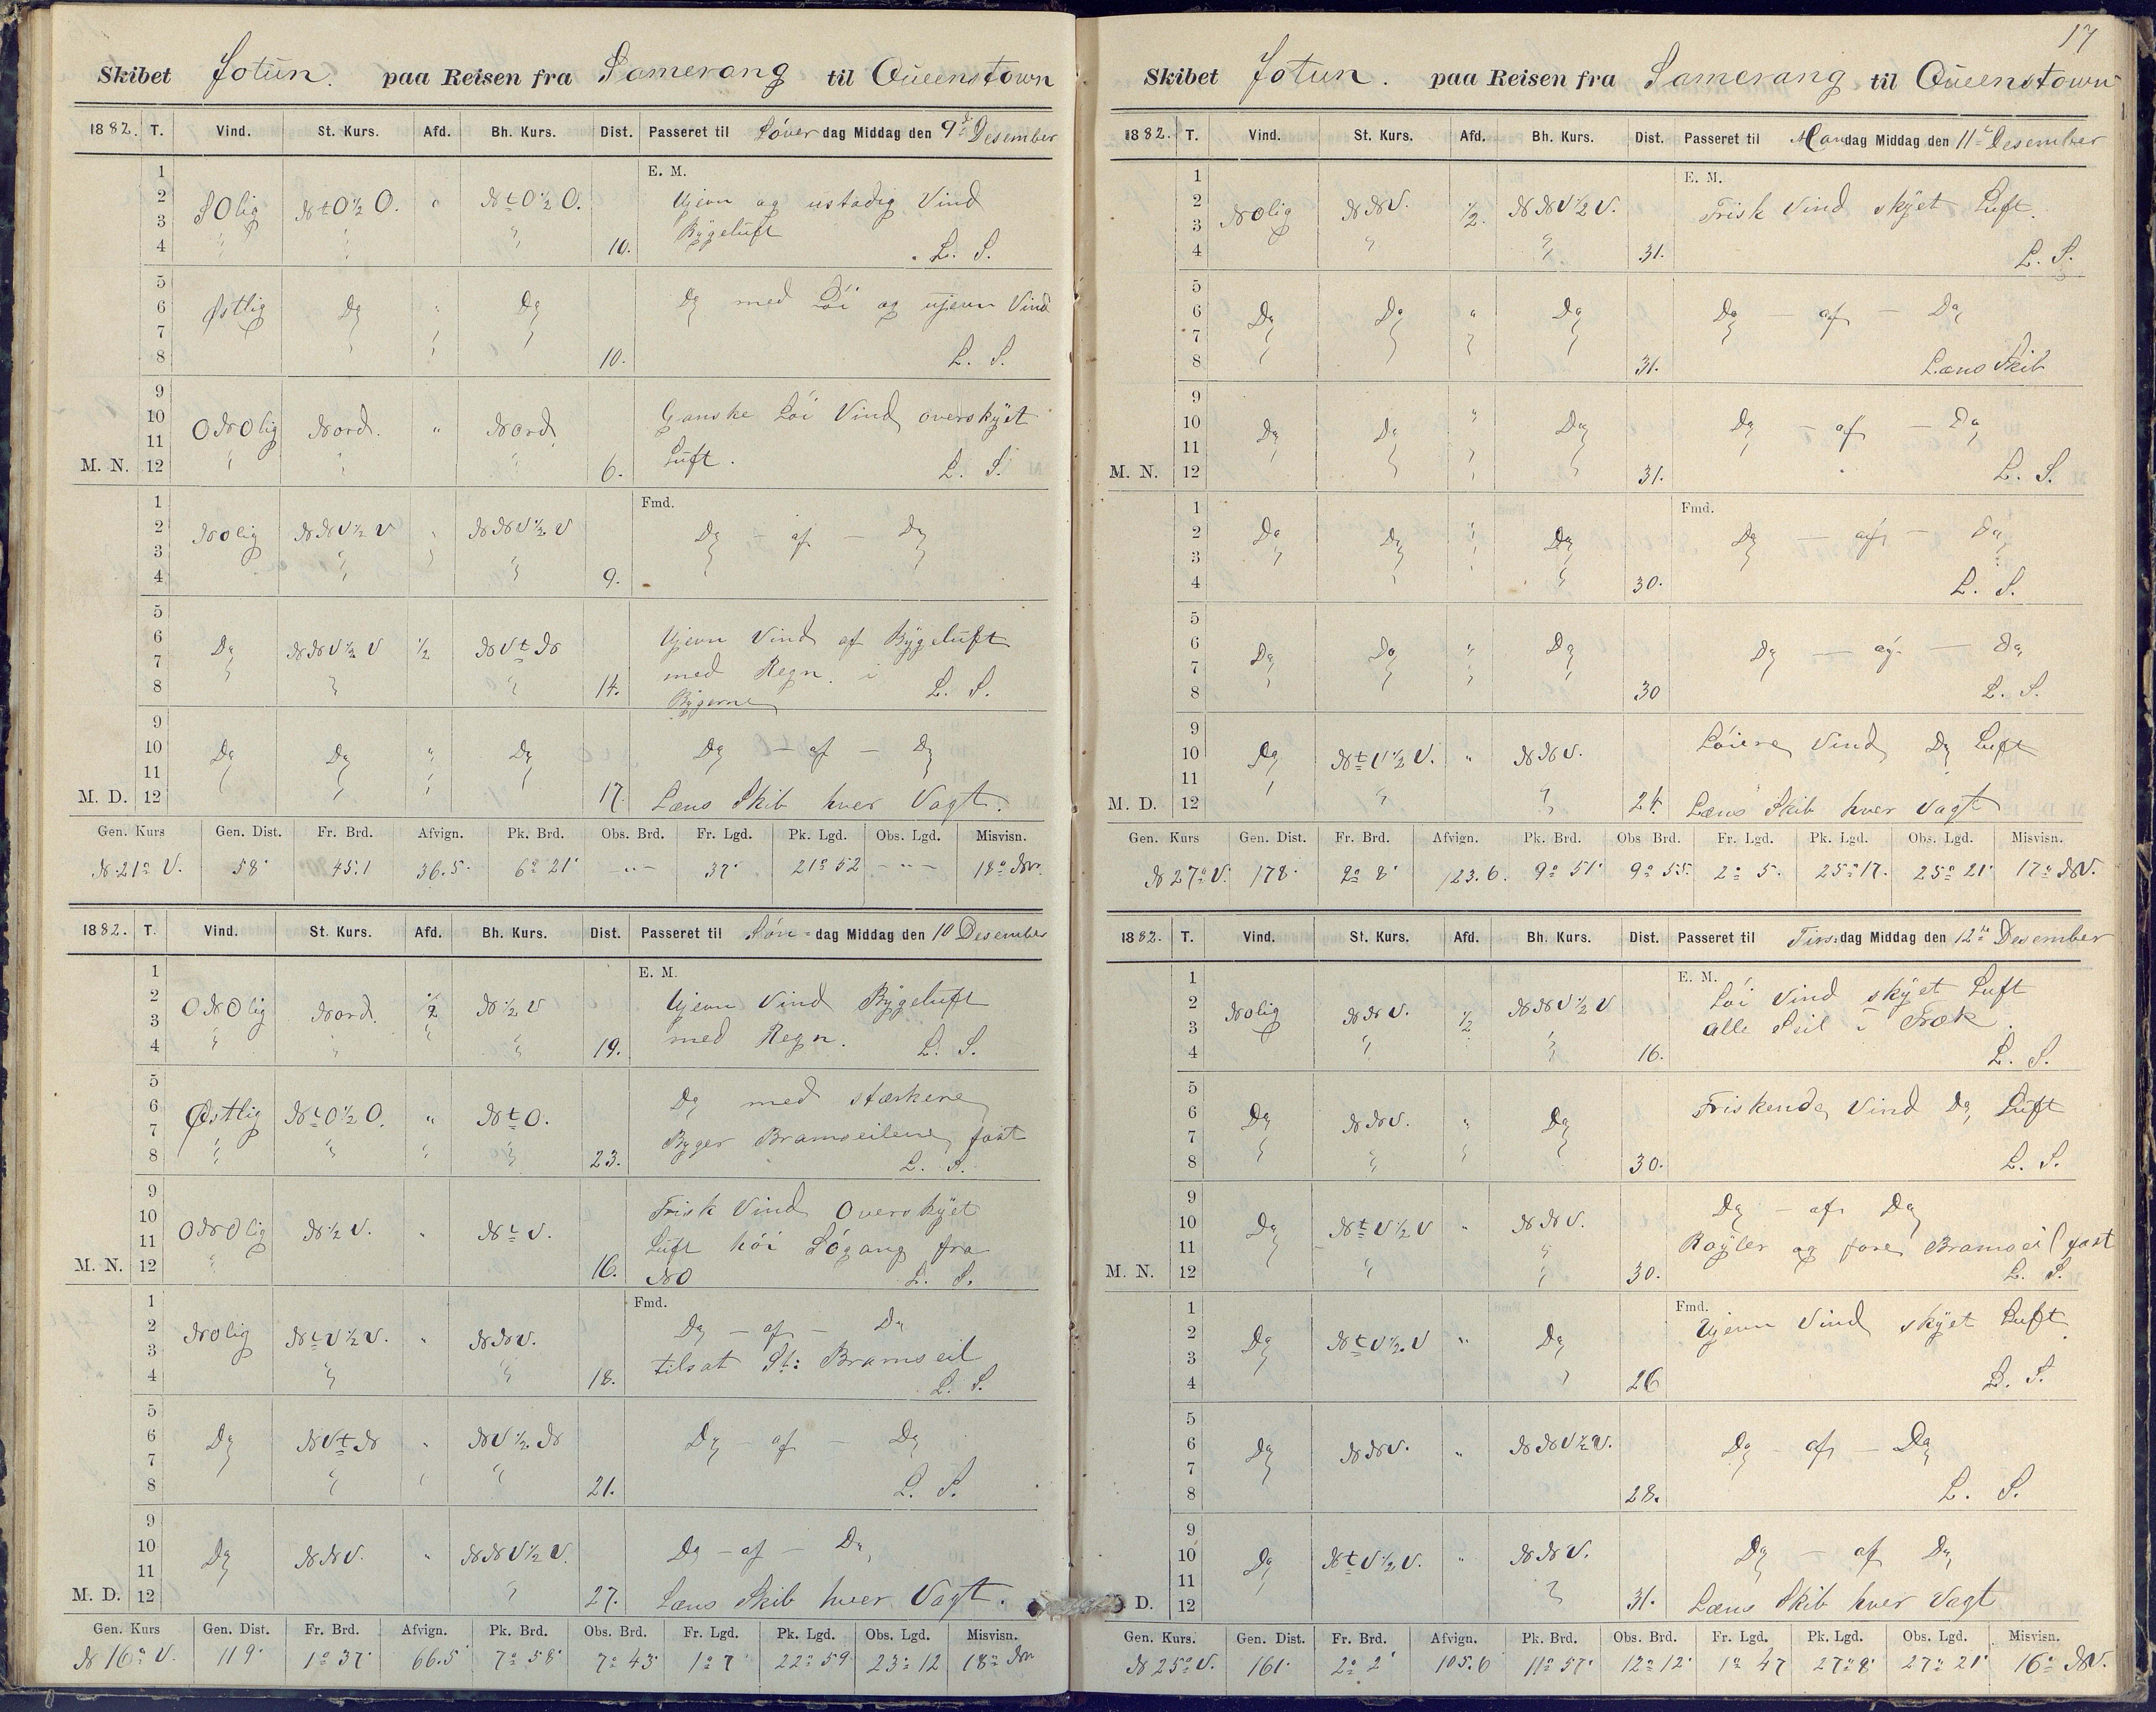 Skibet Jotun. paa Reisen fra Samerang til Queenstown
1882. T. Vind. St. Kurs. Afd. Bh. Kurs. Dist. Passeret til Löver dag Middag den 9de Desember
1 E. M.
2 SOlig NtO½O. " NtO½O. Ujevn og ustadig Vind
3 Bygeluft
4 " " " 10. L. S.
5
6 Østlig Do " Do Do med Löi og ujevn Vind
7
8 10. L. S.
9
10 ONOlig Nord. " Nord Ganske Löi Vind overskÿet
11
M. N. 12 6. Luft. L. S.
1 Fmd.
2 NOlig NNV½V " NNV½V Do - af - Do
3
4 9.
5
6 Do NNV½V ½ NVtN Ujevn Vind af Bygeluft
7 med Regn. i
8 14. Bygerne L. S.
9
10 Do Do " Do Do - af - Do
11
M. D. 12 17. Læns Skib hver Vagt.
Gen. Kurs Gen. Dist. Fr. Brd. Afvign. Pk. Brd. Obs. Brd. Fr. Lgd. Pk. Lgd. Obs. Lgd. Misvisn.
N.21° V. 58' 45.1 36.5' 6° 21' -"- 37' 21° 52 -"- 18° NV.
1882. T. Vind. St. Kurs. Afd. Bh. Kurs. Dist. Passeret til Søn- dag Middag den 10 Desember
1 E. M.
2 ONOlig Nord. ½ N½V Ujevn Vind Bygeluft
3
4 19. med Regn. L. S.
5
6 Østlig NtO½O. " NtO. Do med stærkere
7 Byger Bramseilene fast
8 23. L. S.
9
10 ONOlig N½V. " NtV. Frisk Vind Overskÿet
11 Luft höi Sögang fra
M. N. 12 16. NO L. S.
1 Fmd.
2 NOlig NtV½V. " NNV. Do - af - Do
3 tilsat St: Bramseil
4 18. L. S.
5
6 Do NVtN " NV½N Do - af - Do
7
8 21. L. S.
9
10 Do NNV. " NNV½V. Do - af - Do
11
M. D. 12 27. Læns Skib hver Vagt.
Gen. Kurs Gen. Dist. Fr. Brd. Afvign. Pk. Brd. Obs. Brd. Fr. Lgd. Pk. Lgd. Obs. Lgd. Misvisn.
N 16° V. 119' 1° 37' 66.5' 7° 58' 7° 43' 1° 7' 22° 59 23° 12 18° NV
17
Skibet Jotun. paa Reisen fra Samerang til Queenstown
1882. T. Vind. St. Kurs. Afd. Bh. Kurs. Dist. Passeret til Mandag Middag den 11te Desember
1 E. M.
2 NOlig NNV. ½. NNV½V. Frisk Vind skÿet Luft.
3
4 31. L. S.
5
6 Do Do " Do Do - af - Do
7
8 31. Læns Skib
9
10 Do Do " Do Do - af - Do
11
M. N. 12 31. L. S.
1 Fmd.
2 Do Do " Do Do - af - Do
3
4 30. L. S.
5
6 Do Do " Do Do - af - Do
7
8 30 L. S.
9
10 Do NtV½V. " NNV. Löiere Vind Do Luft
11
M. D. 12 24. Læns Skib hver Vagt
Gen. Kurs Gen. Dist. Fr. Brd. Afvign. Pk. Brd. Obs Brd. Fr. Lgd. Pk. Lgd. Obs. Lgd. Misvisn.
N 27° V. 178' 2° 8' 123.6. 9° 51' 9° 55' 2° 5. 25° 17. 25° 21' 17° NV.
1882. T. Vind. St. Kurs. Afd. Bh. Kurs. Dist. Passeret til Tirsdag Middag den 12te Desember
1 E. M.
2 NOlig NNV. ½ NNV½V Löi Vind skÿet Luft
3 alle Seil i Træk.
4 16. L. S.
5
6 Do NNV. " Do Friskende Vind Do Luft
7
8 30. L. S.
9
10 Do NtV½V " NNV. Do - af Do
11 Røyler og fore Bramseil fast
M. N. 12 30. L. S.
1 Fmd.
2 Do NtV½V " Do Ujevn Vind skÿet Luft.
3
4 26 L. S.
5
6 Do NNV. " NNV½V. Do - af - Do
7
8 28. L. S.
9
10 Do NtV½V. " NNV. Do - af Do
11
D. 12 31. Læns Skib hver Vagt
Gen. Kurs. Gen. Dist. Fr. Brd. Afvign. Pk. Brd. Obs. Brd. Fr. Lgd. Pk. Lgd. Obs. Lgd. Misvisn.
N 25° V. 161' 2° 2' 105.6 11° 57' 12° 12' 1° 47 27° 8' 27° 21' 16° NV.